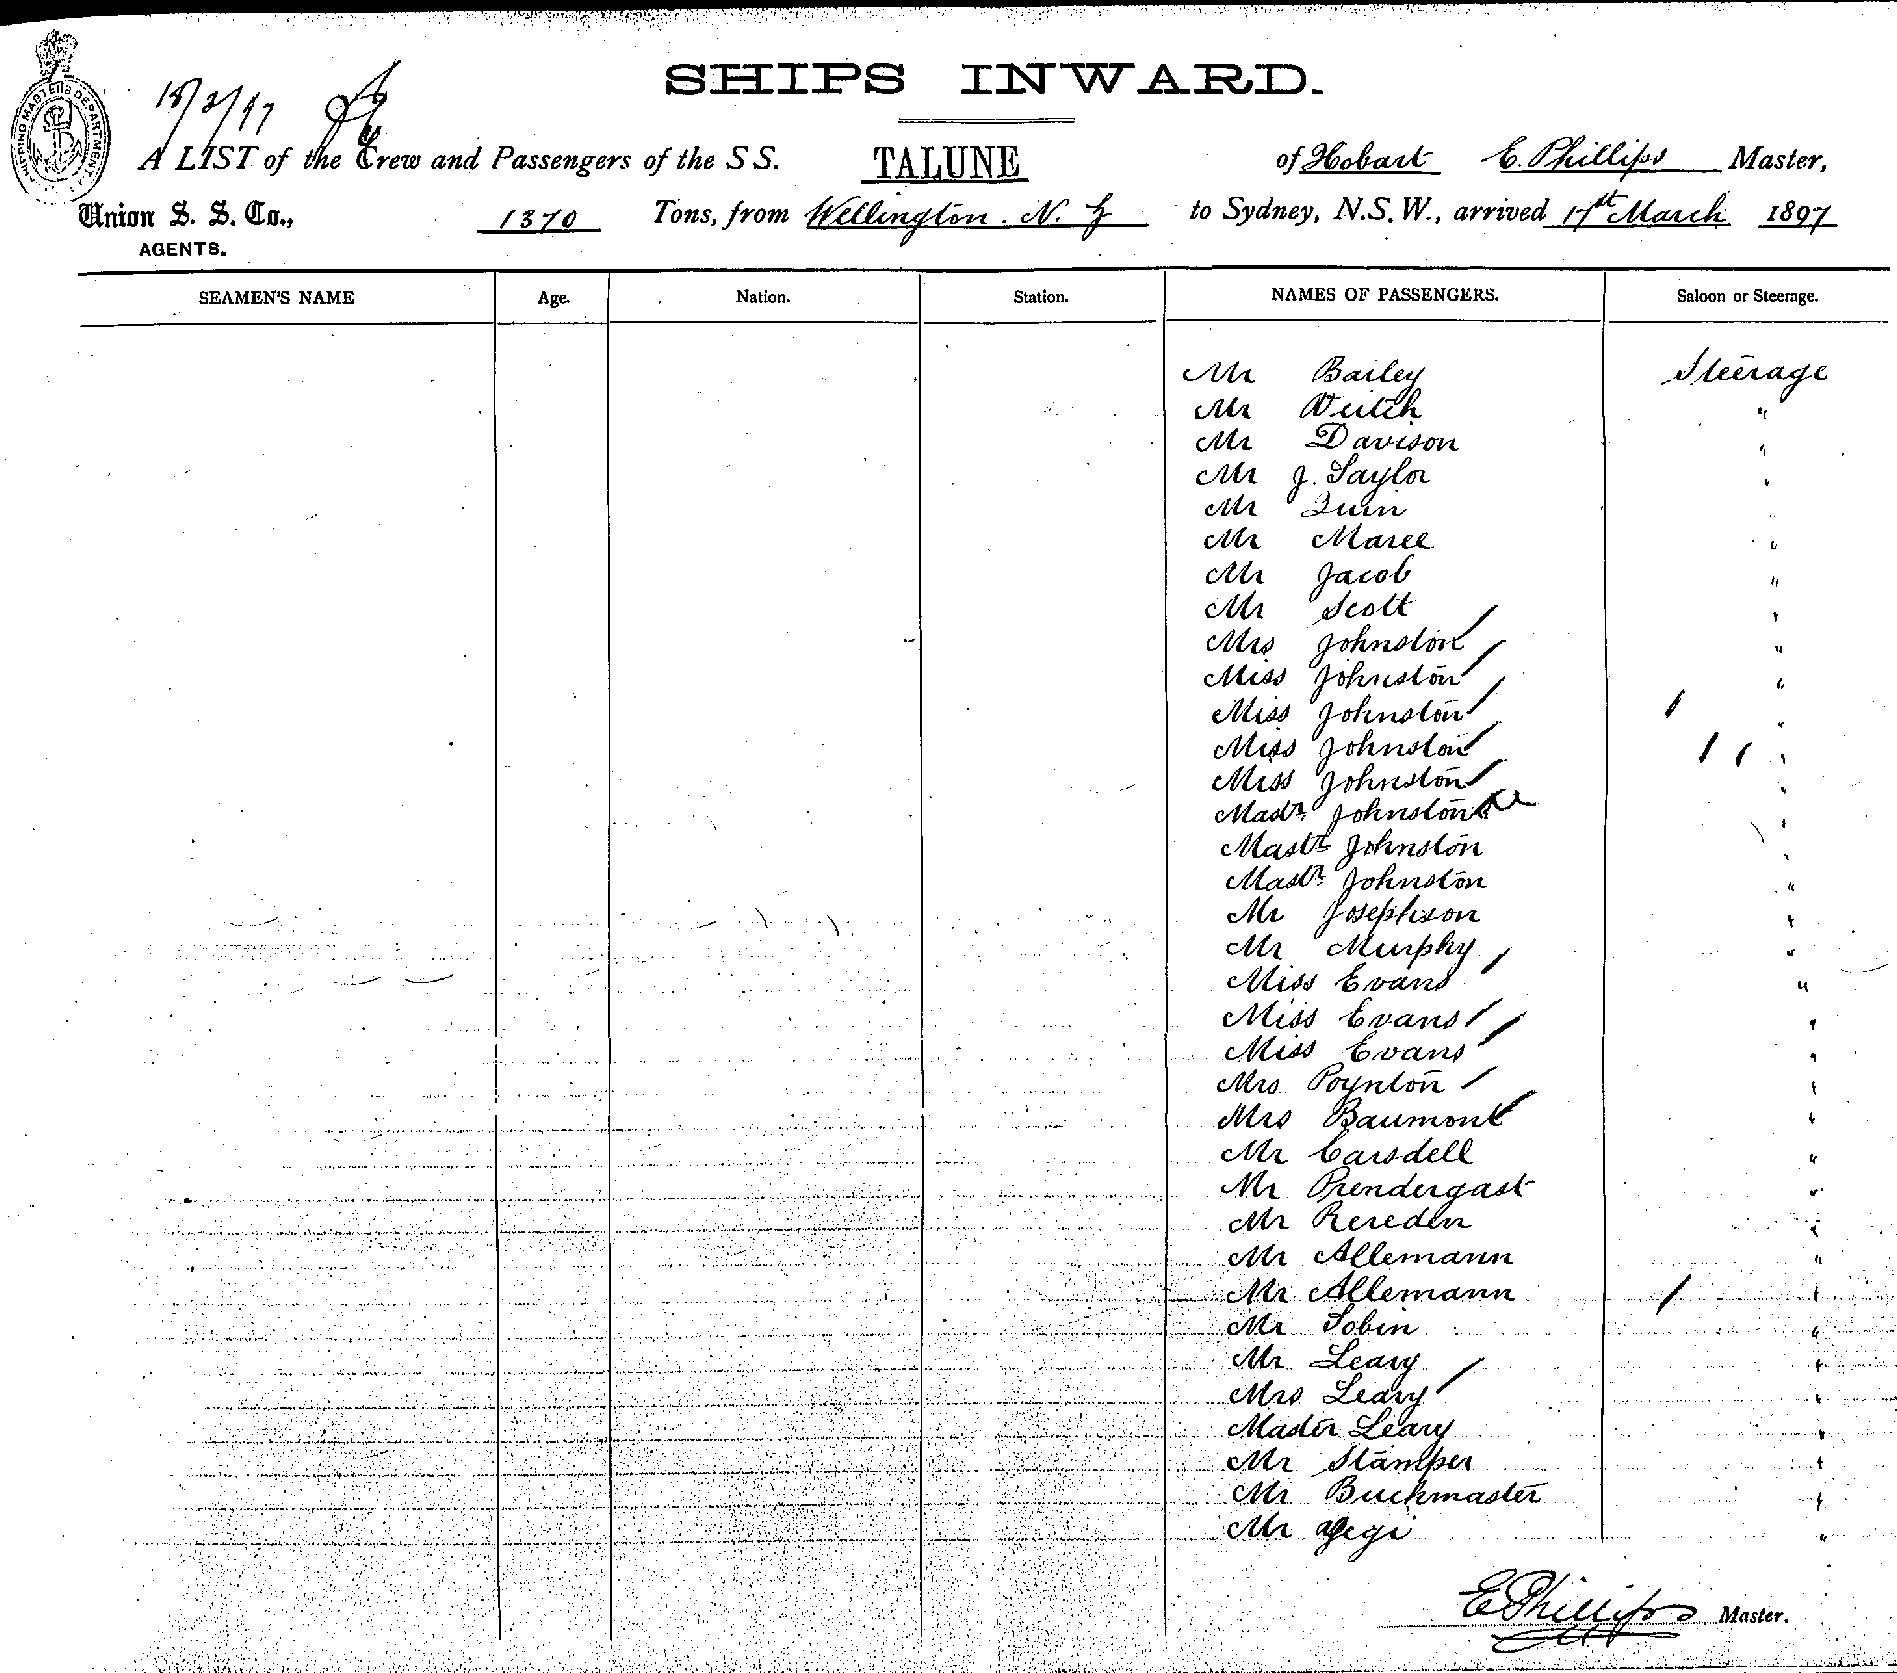 SHIPS INWARD.
SHIPPING MASTERS DEPARTMENT
18/3/97
A LIST of the Crew and Passengers of the S S. TALUNE of Hobart E. Phillips Master,
Union S. S. Co., 1370 Tons, from Wellington. N. Z to Sydney, N.S.W., arrived 17th March 1897
AGENTS.
SEAMEN'S NAME Age. Nation. Station. NAMES OF PASSENGERS. Saloon or Steerage.
Mr Bailey Steerage
Mr Veitch "
Mr Davison "
Mr J. Taylor "
Mr Quin
Mr Maree "
Mr Jacob "
Mr Scott "
Mrs Johnston "
Miss Johnston "
Miss Johnston "
Miss Johnston "
Miss Johnston "
Mastr Johnston "
Mastr Johnston "
Mastr Johnston "
Mr Josephson "
Mr Murphy "
Miss Evans "
Miss Evans "
Miss Evans "
Mrs Poynton "
Mrs Baumont "
Mr Carsdell "
Mr Prendergast "
Mr Rereden "
Mr Allemann "
Mr Allemann "
Mr Tobin "
Mr Leary "
Mrs Leary "
Master Leary "
Mr Stamper "
Mr Buckmaster "
Mr "
E Phillips Master.